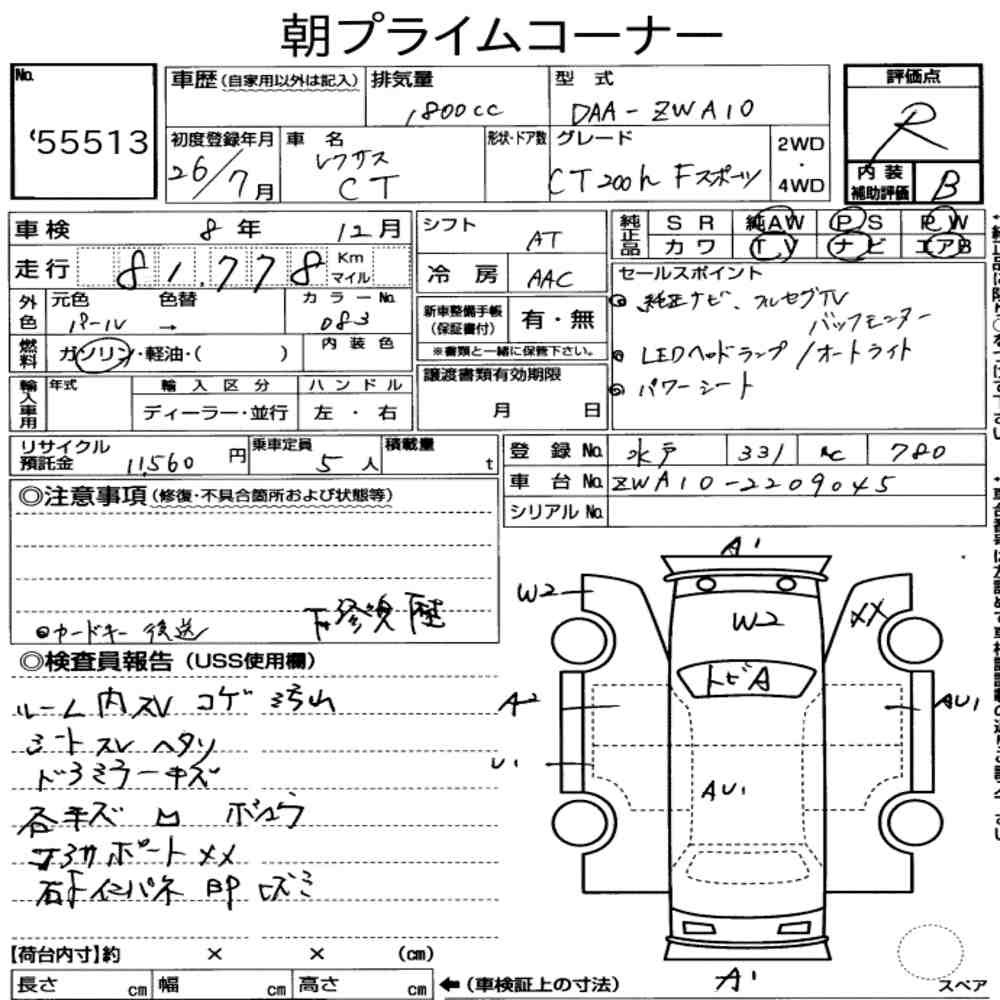 朝プライムコーナー
No. 55513
車歴(自家用以外は記入)
排気量 1,800cc
型式 DAA-ZWA10
評価点 R
初度登録年月 26/7月
車名 レクサス CT
形状・ドア数
グレード CT200h Fスポーツ
2WD・4WD
内装補助評価 B
車検 8年 12月
シフト AT
純正品 SR 純AW PS PW
カワ TV ナビ エアB
走行 81,778 Km マイル
冷房 AAC
セールスポイント
純正ナビ、フルセグTV
バックモニター
LEDヘッドランプ/オートライト
パワーシート
外色 元色 パール 色替 → カラーNo. 083
新車整備手帳(保証書付) 有・無
※書類と一緒に保管下さい。
燃料 ガソリン・軽油・( ) 内装色
輸入車用 年式 輸入区分 ハンドル
ディーラー・並行 左・右
譲渡書類有効期限
月 日
リサイクル預託金 11,560円 乗車定員 5人 積載量 t
登録No. 水戸 331 780
車台No. ZWA10-2209045
シリアルNo.
◎注意事項(修復・不具合箇所および状態等)
カードキー後送
修復歴
◎検査員報告(USS使用欄)
ルーム内スレ コゲ 汚れ
シートスレ ヘタリ
ドアミラーキズ
各キズ 凹
サポートXX
インパネ
A1
W2
W2
XX
トビA
A2
AU1
U1
AU1
A1
【荷台内寸】約 × × (cm)
長さ cm 幅 cm 高さ cm
←(車検証上の寸法)
スペア